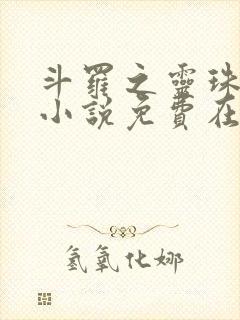 斗羅之靈珠
小說免費在
氢氧化娜